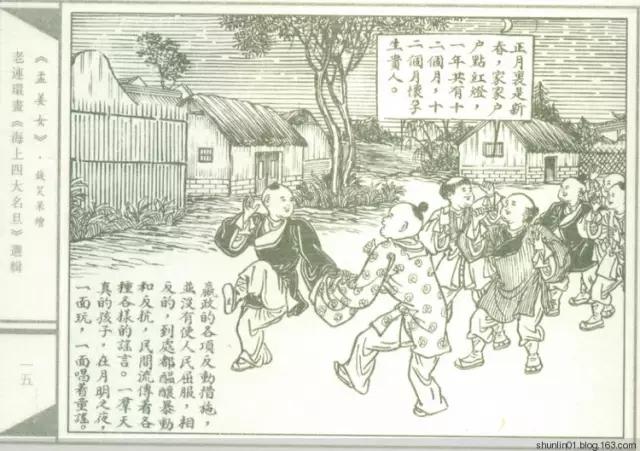 正月裏是新
春，家家户
户點紅燈，
一年共有十
二個月，十
二個月懷孕
生貴人。
嬴政的各項反動措施，
並沒有使人民屈服，相
反的，到處都醖釀暴動
和反抗，民間流傳着各
種各樣的謡言。一羣天
真的孩子，在月明之夜，
一面玩，一面唱着童謡。
《孟姜女》·錢笑呆繪
老連環畫《海上四大名旦》選輯
一五
shunlin01.blog.163.com